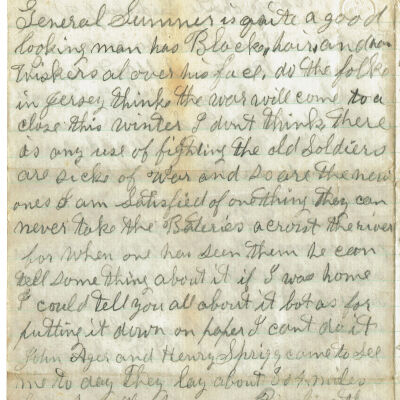 General Sumner is quite a good
looking man has Black hair and
Wiskers al over his face, do the folks
in Jersey think the war will come to a
close this winter I dont think there
is any use of fighting the old Soldiers
are sick of War and so are the new
ones I am Satisfied of one thing they can
never take the Bateries acrost the river
for when one has seen them he can
tell some thing about it if I was home
I could tell you all about it but as for
putting it down on paper I cant do it
John Ager and Henry Sprigg came to see
me to day They lay about 3 or 4 miles